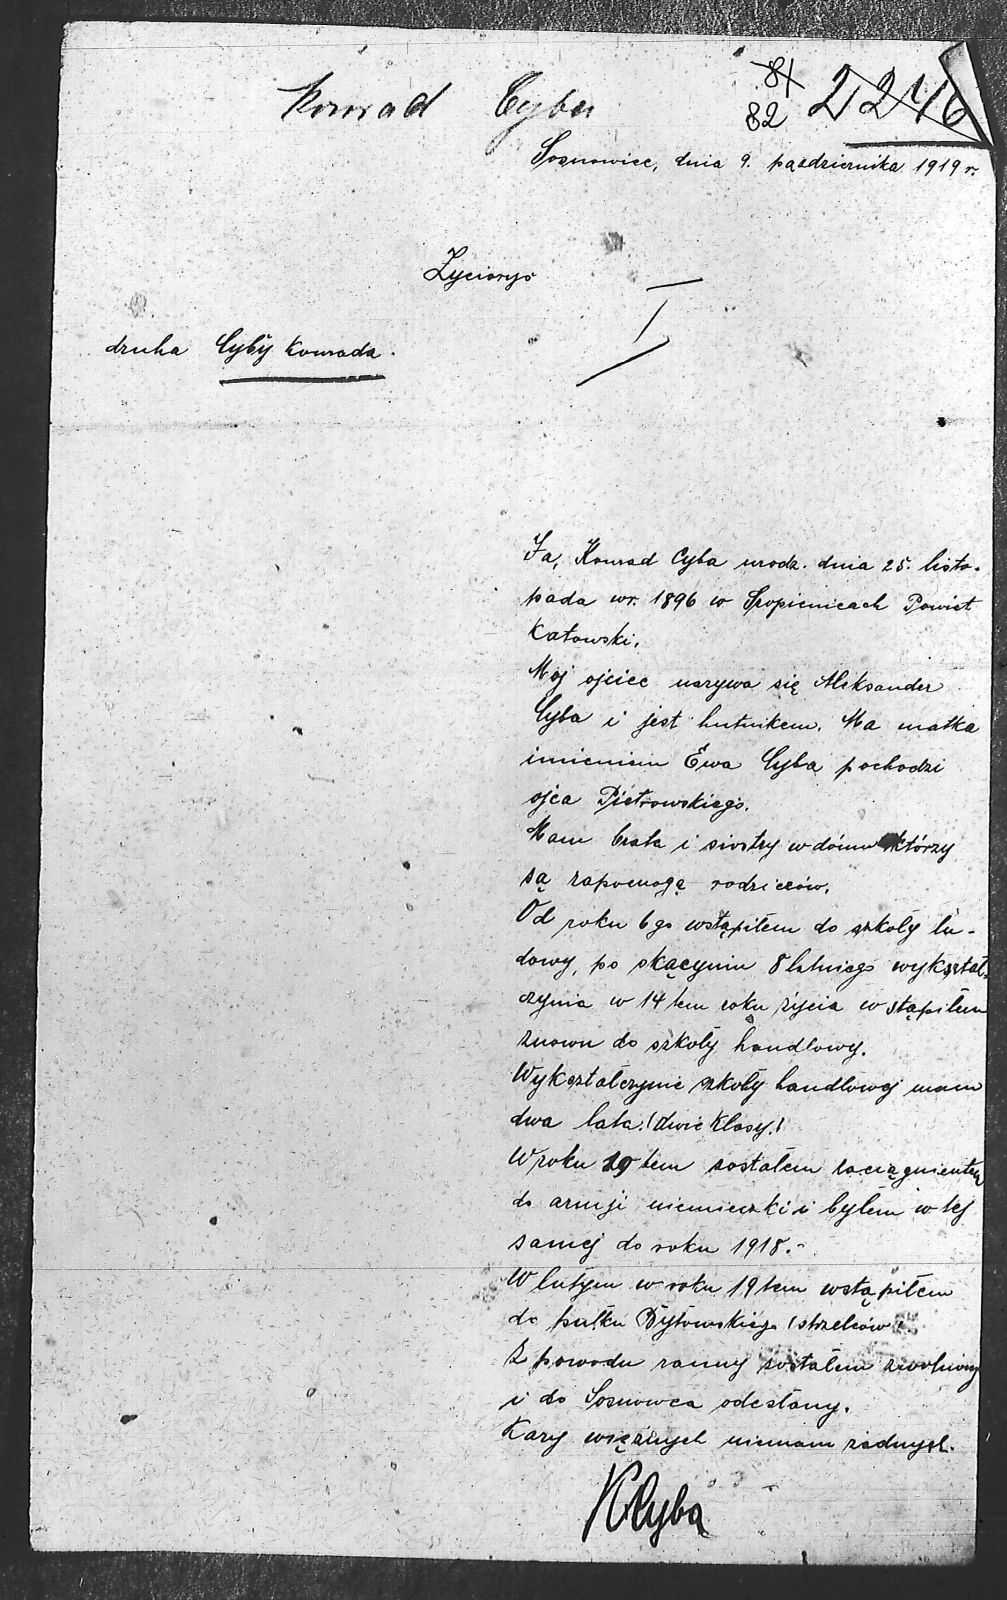 81
82
2246
Konrad Cyba
Sosnowiec, dnia 9. października 1919 r.
Życiorys
druha Cyby Konrada.
I
Ja, Konrad Cyba urodz. dnia 25. listo-
pada wr. 1896 w Szopienicach Powiat
Katowski.
Moj ojciec nazywa się Aleksander
Cyba i jest hutnikem. Ma matka
imieniem Ewa Cyba pochodzi
ojca Pietrowskiego.
Mam brata i siostry w dómu którzy
są zapomogą rodziców.
Od roku 6go wstąpiłem do szkoły lu-
dowy, po skącyniu 8 letniego wykształ-
czynia w 14 tem roku życia wstąpiłem
znowu do szkoły handlowy.
Wykształczynie szkoły handlowej mam
dwa lata. (dwie klasy.)
W roku 19 tem zostałem zaciągnientem
do armji niemieczki i byłem w tej
samej do roku 1918.-
W lutym w roku 19 tem wstąpiłem
do pułku Bytowskiego (strzelców)
Z powodu ranny zostałem zwolniony
i do Sosnowca odesłany.
Kary więźnych niemam żadnych.
KCyba